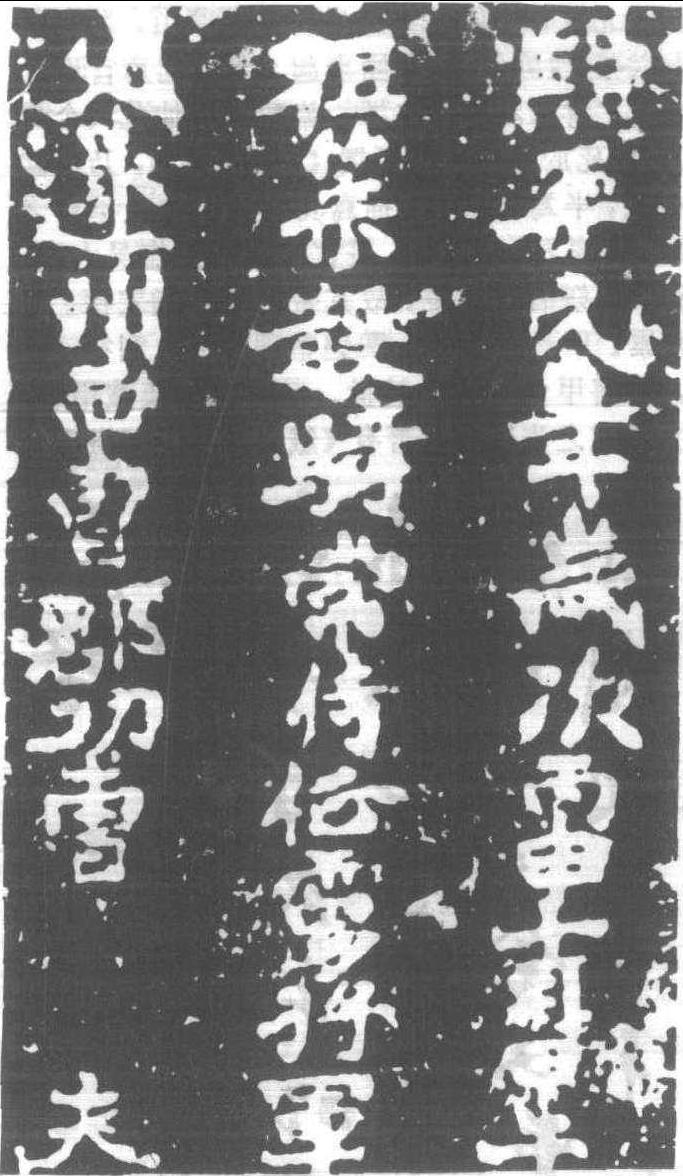 熙平元年歲次丙申
祖策散騎常侍征虜將軍
父州西曹郡功曹 夫